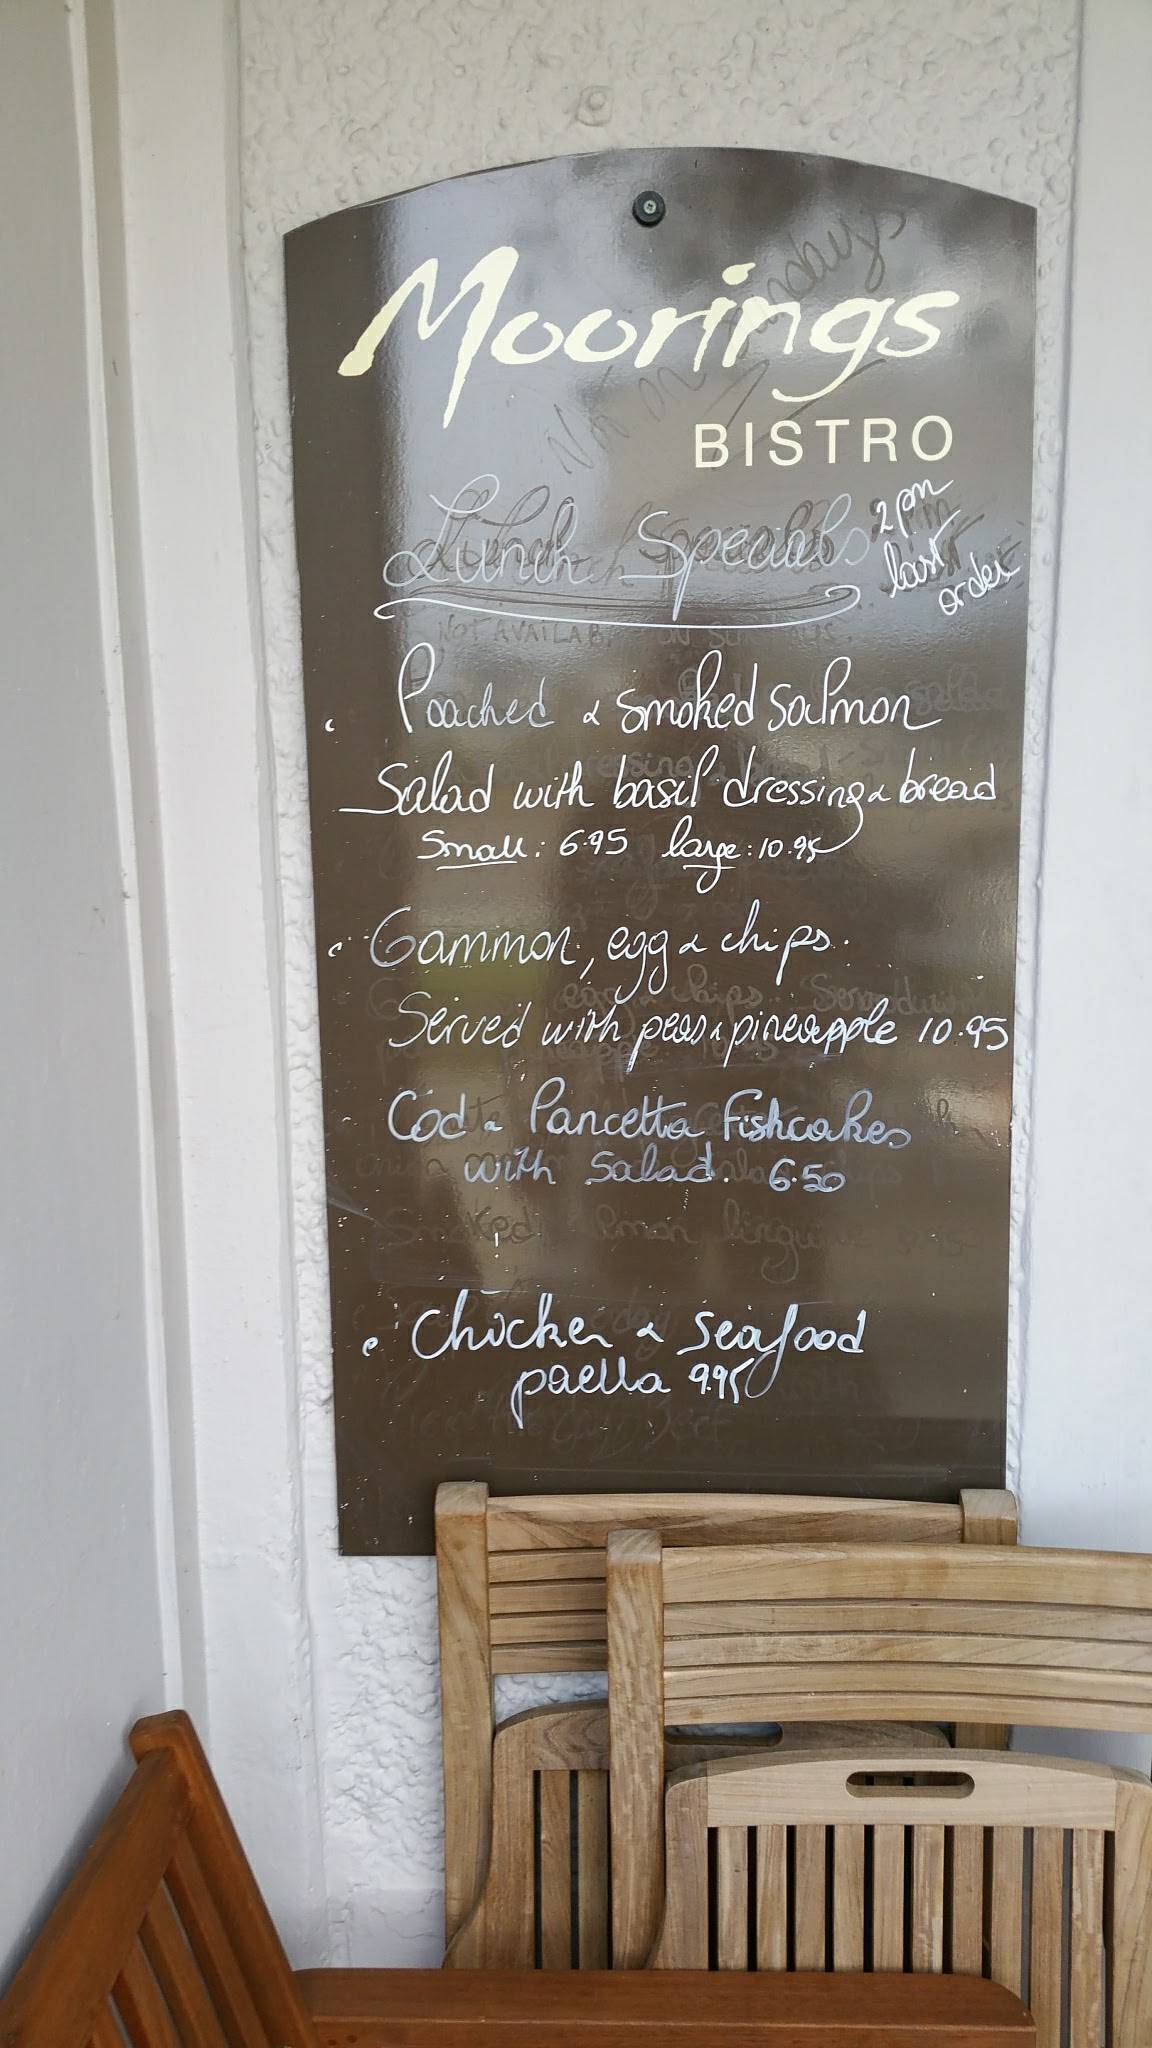 Moorings
BISTRO
Lunch Specials
2pm
last
order
NOT AVAILABLE ON SUNDAYS.
Poached & smoked salmon
Salad with basil dressing & bread
Small: 6.95 large: 10.95
Gammon, egg & chips.
Served with peas & pineapple 10.95
Cod & Pancetta Fishcakes
with Salad. 6.50
Chicken & seafood
paella 9.95